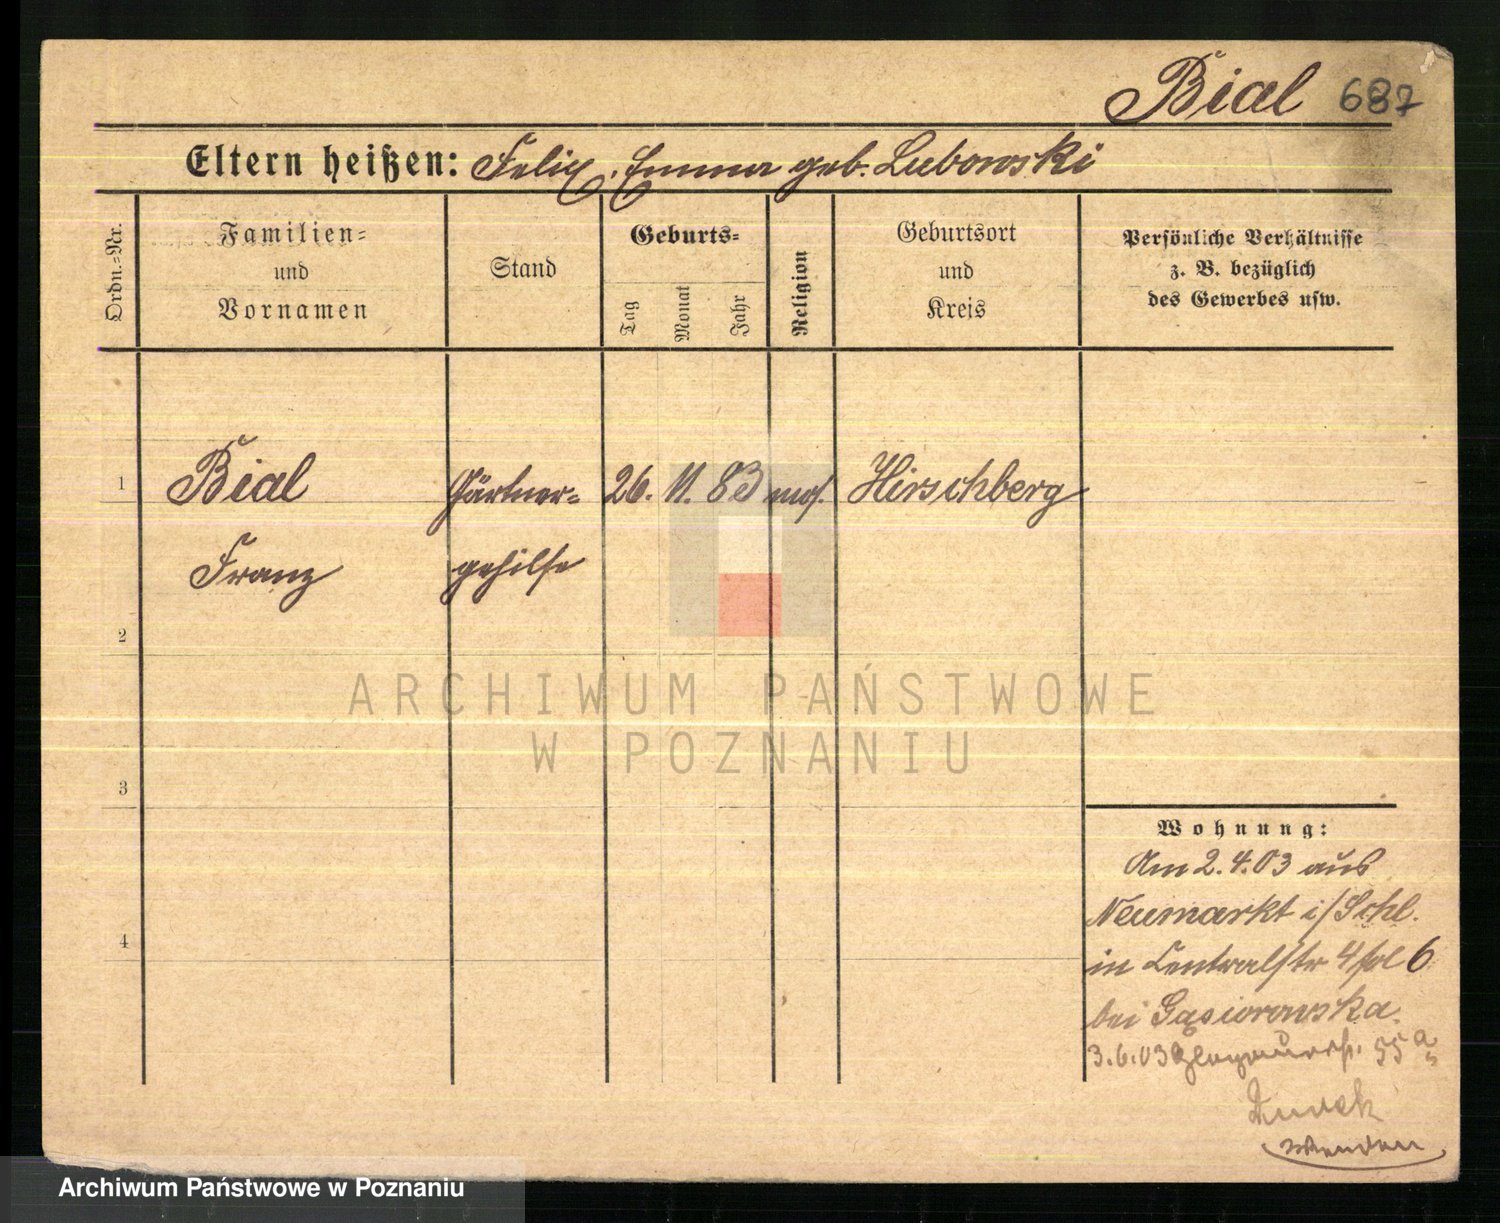 Bial 687
Eltern heißen: Felix, Emma geb. Lubowski
Ordn.-Nr.
Familien-
und
Vornamen
Stand
Geburts-
Tag
Monat
Jahr
Religion
Geburtsort
und
Kreis
Persönliche Verhältnisse
z. B. bezüglich
des Gewerbes usw.
1 Bial Gärtner- 26. 11. 83 mos. Hirschberg
Franz gehilfe
2
3
4
Wohnung:
Am 2.4.03 aus
Neumarkt i/Schl.
in Centralstr 4 6
bei Gąsiorowska.
3.6.03 55a
Wenden
ARCHIWUM PAŃSTWOWE
W POZNANIU
Archiwum Państwowe w Poznaniu